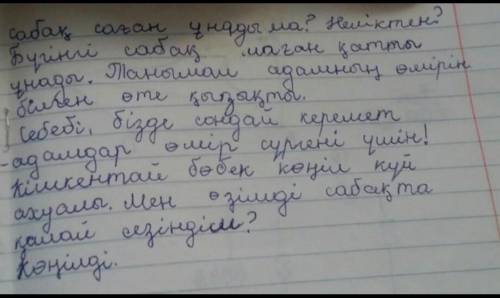 сабақ саған ұнадыма? Неліктен?
Бүгінгі сабақ маған қатты
ұнады. Танымал адамның өмірін
білген өте қызықты.
Себебі, бізде сондай керемет
адамдар өмір сүргені үшін!
Кішкентай бөбек көңіл күй
ахуалы. Мен өзімді сабақта
қалай сезіндім?
Көңілді.